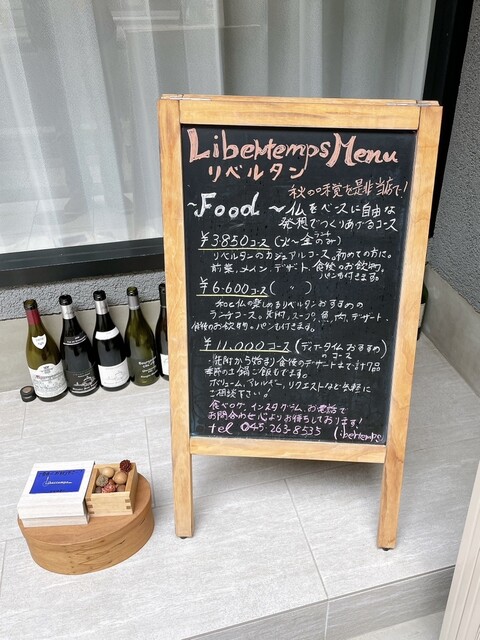 Libertemps Menu
リベルタン
秋の味覚を是非当店で!
~Food~ 仏をベースに自由な
発想でつくりあげるコース
¥3850コース (火~金のみ) ランチ
リベルタンのカジュアルコース。初めての方に。
前菜、メイン、デザート、食後のお飲物。
パンも付きます。
¥6.600コース ( 〃 )
和と仏の楽しめるリベルタンおすすめの
ランチコース。先附、スープ、魚、肉、デザート、
食後のお飲物。パンも付きます。
¥11,000コース (ディナータイムおすすめ
のコース
先附から始まり食後のデザートまで計7品
季節の土鍋ご飯もでます。
ボリューム、アレルギー、リクエストなどお気軽に
ご相談下さい。
食べログ、インスタグラム、お電話で
お問合わせ心よりお待ちしております!
tel 045-263-8535 Libertemps